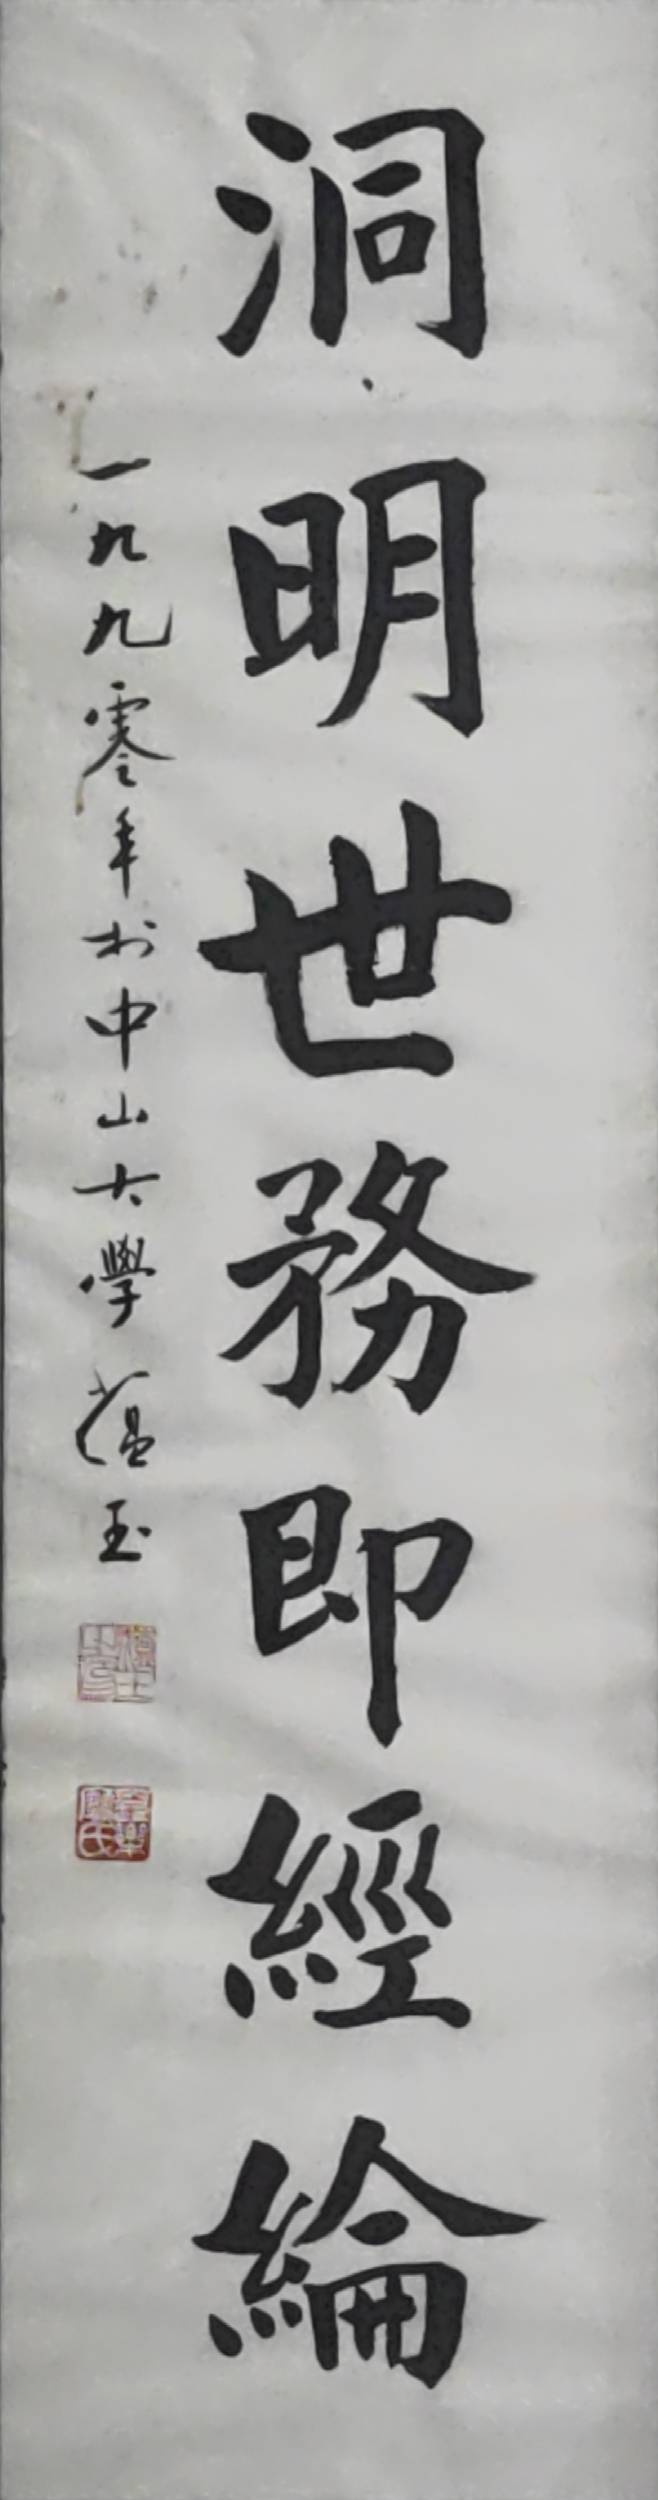 洞明世務即經綸
一九九零年於中山大學蘊玉